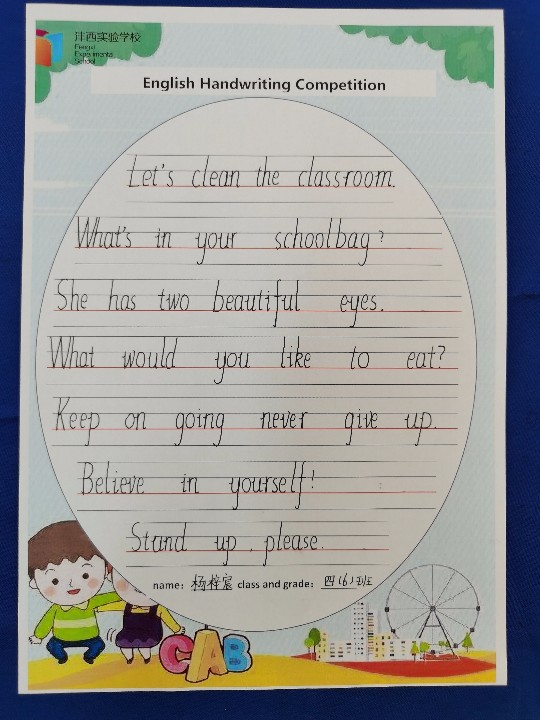 沣西实验学校
Fengxi
Experimental
School
English Handwriting Competition
Let's clean the classroom.
What's in your schoolbag?
She has two beautiful eyes.
What would you like to eat?
Keep on going never give up.
Believe in yourself!
Stand up, please.
name: 杨梓宸 class and grade: 四(6)班
CAB